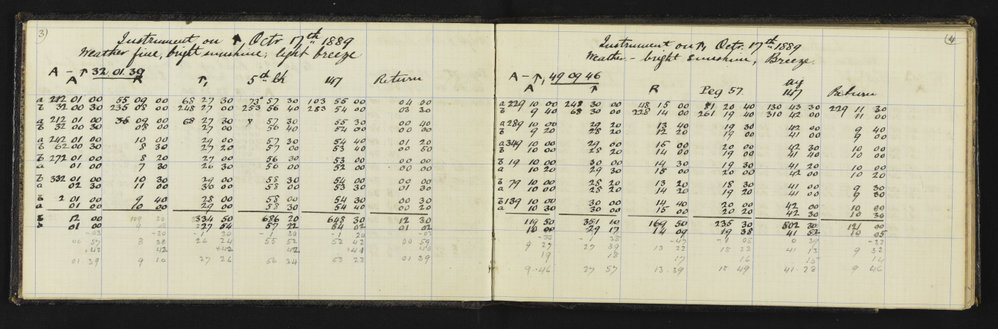 3)
Instrument on ↑ Octr 17th 1889
Weather fine, bright sunshine; light breeze
A - ↑ 32 01 30
A R ↑, 5th bk 147 Return
a 212 01 00 55 09 00 68 27 30 73 57 30 103 55 00 04 00
b 32 00 30 235 08 00 248 27 00 253 56 40 283 54 00 03 30
a 212 01 00 09 00 68 27 30 57 30 55 30 00 40
b 32 00 30 08 00 27 00 56 40 54 00 00 00
a 242 01 00 10 00 29 00 57 30 54 40 01 20
b 62 00 30 8 30 27 20 57 00 53 00 00 50
b 272 01 00 8 20 27 00 56 30 53 00 00 00
a 01 00 7 30 26 30 56 00 52 00 00 00
b 332 01 00 10 30 29 00 58 30 54 00 01 00
a 02 30 11 00 30 00 58 00 53 30 01 30
b 2 01 00 9 40 28 00 58 00 54 30 00 30
a 01 00 10 00 27 00 58 30 54 00 00 20
12 00 334 50 686 20 648 30 12 30
01 00 27 54 57 22 54 02 01 02
01 39 9 10 27 26 56 34 53 28 01 39
4
Instrument on ↑, Octr. 17th 1889
Weather - bright sunshine, Breeze.
A - ↑, 49 09 46
A R Peg 57. 147 Return
a 229 10 00 248 30 00 48 15 00 81 20 40 130 43 30 229 11 30
b 9 40 68 30 00 228 14 00 261 19 40 310 42 00 11 00
a 289 10 00 29 20 13 40 19 30 42 00 9 40
b 9 20 28 20 12 20 19 00 41 00 9 00
a 349 10 00 29 00 16 00 20 00 42 30 10 00
b 10 00 28 20 14 00 19 00 41 40 10 00
b 19 10 00 30 00 14 30 19 30 41 20 10 00
a 10 20 29 30 15 00 20 00 42 00 10 20
b 79 10 00 28 20 13 20 18 30 41 00 9 30
a 10 00 28 20 14 20 19 20 41 00 9 30
b 139 10 00 30 00 14 40 20 00 42 00 10 00
a 10 30 30 00 15 00 20 20 42 30 10 30
119 50 351 10 169 50 235 30 502 30 121 00
10 00 29 17 14 09 19 38 41 52 10 05
9 27 13 22 41 12 9 32
19 18 17 16 15 14
9.46 27 57 13.39 41.28 9 46